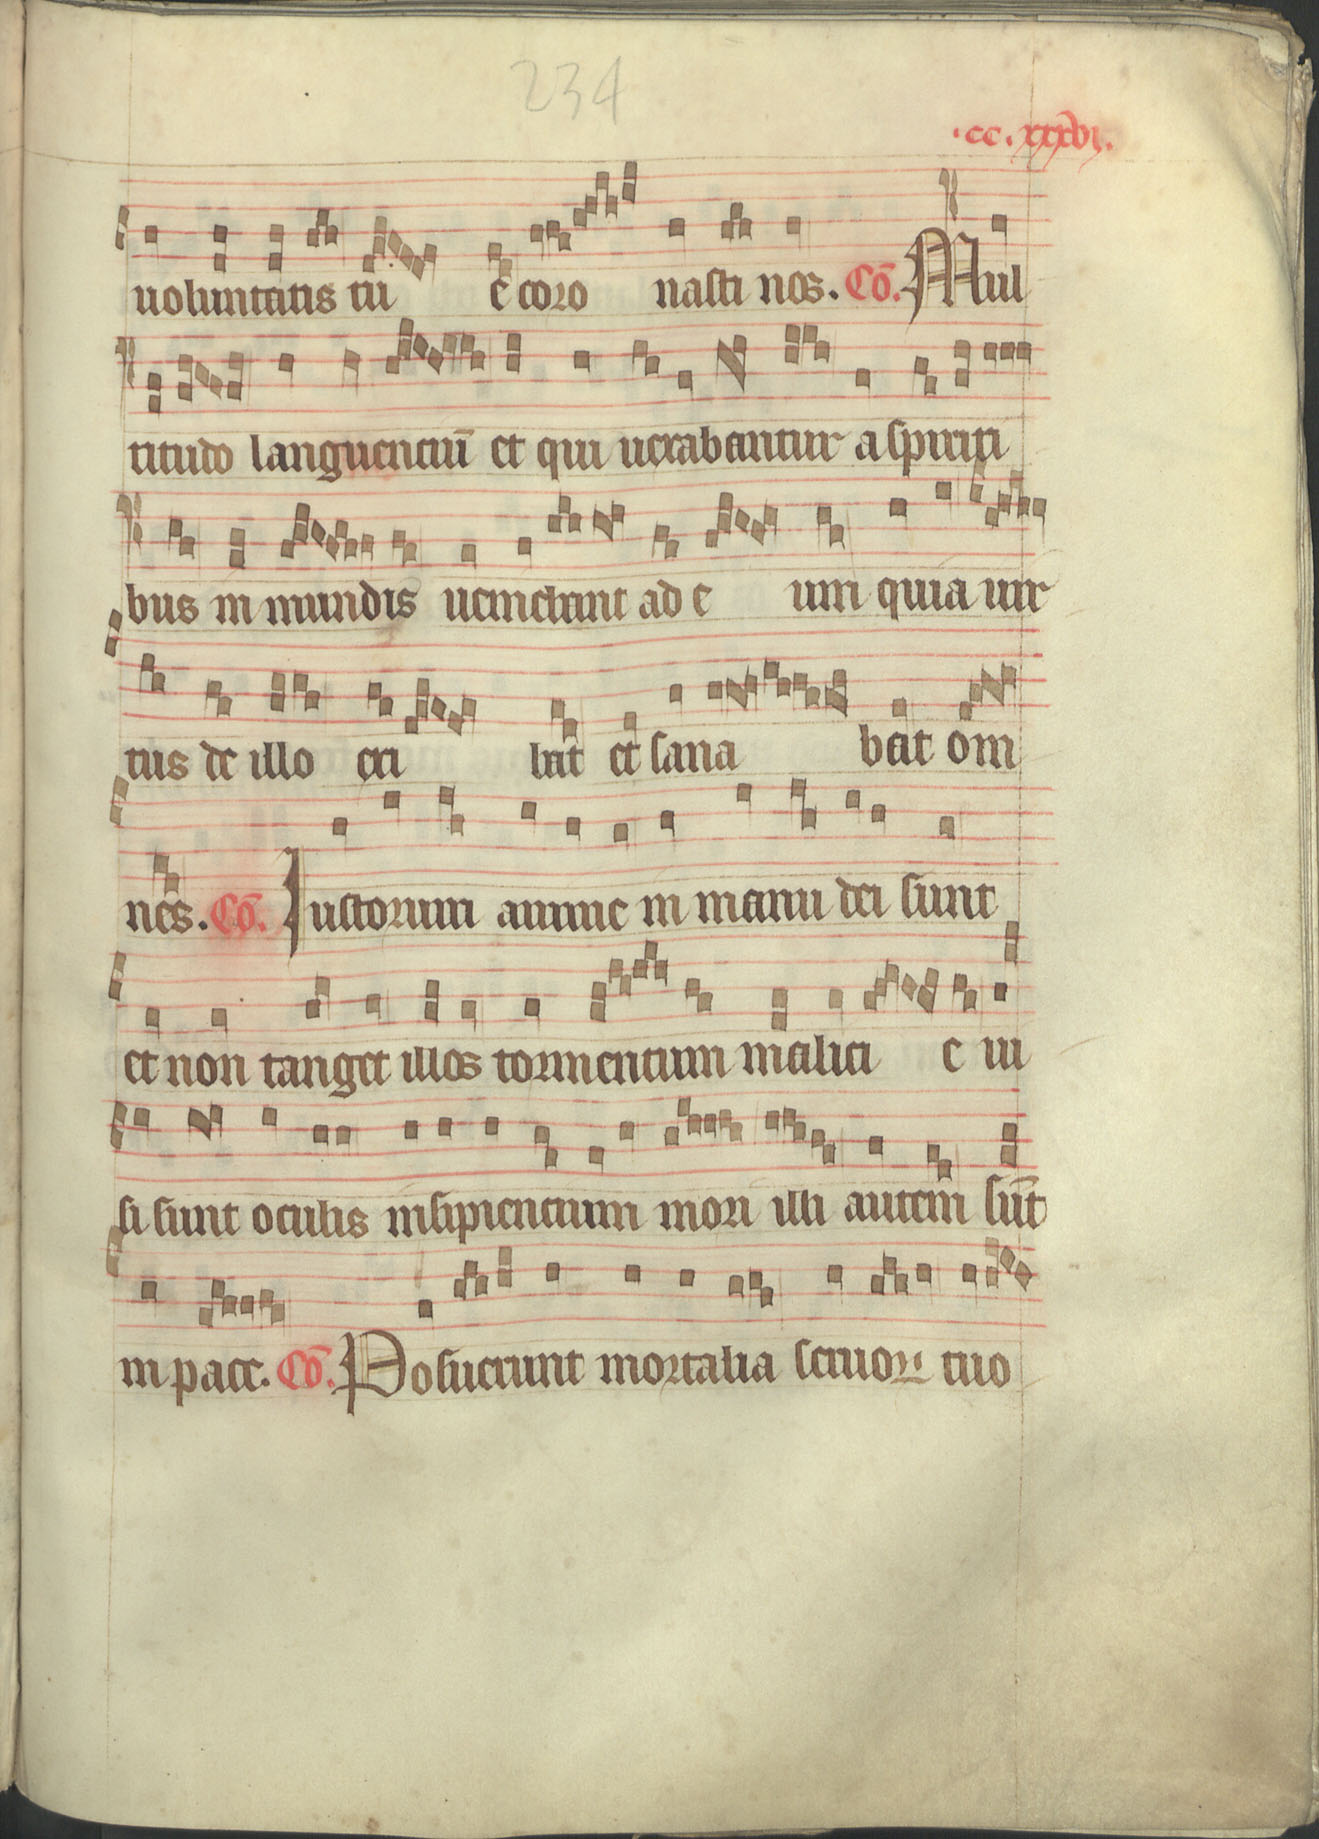 234
.cc.xxxvi.
uoluntatis tu e coro nasti nos. Cō. Mul
titudo languenciū et qui uexabantur a spiriti
bus in mundis ueniebant ad e um quia uir
tus de illo exi bat et sana bat om
nes. Cō. Iustorum anime in manu dei sunt
et non tanget illos tormentum malici e ui
si sunt oculis insipiencium mori illi autem sūt
in pace. Cō. Posuerunt mortalia seruoꝝ tuo